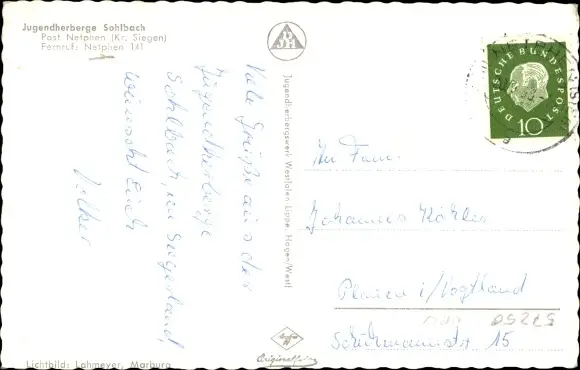 Jugendherberge Sohlbach
Post Netphen (Kr. Siegen)
Fernruf: Netphen 141
DJH
Viele Grüße aus der
Jugendherberge
Sohlbach, im Siegerland,
wünscht Euch
Volker
Jugendherbergswerk Westfalen-Lippe, Hagen/Westf.
DEUTSCHE BUNDESPOST
10
An Fam.
Johannes Köhler
Plauen i/Vogtland
Schürmannstr 15
57250
Agfa
Originalfoto
Lichtbild: Lahmeyer, Marburg